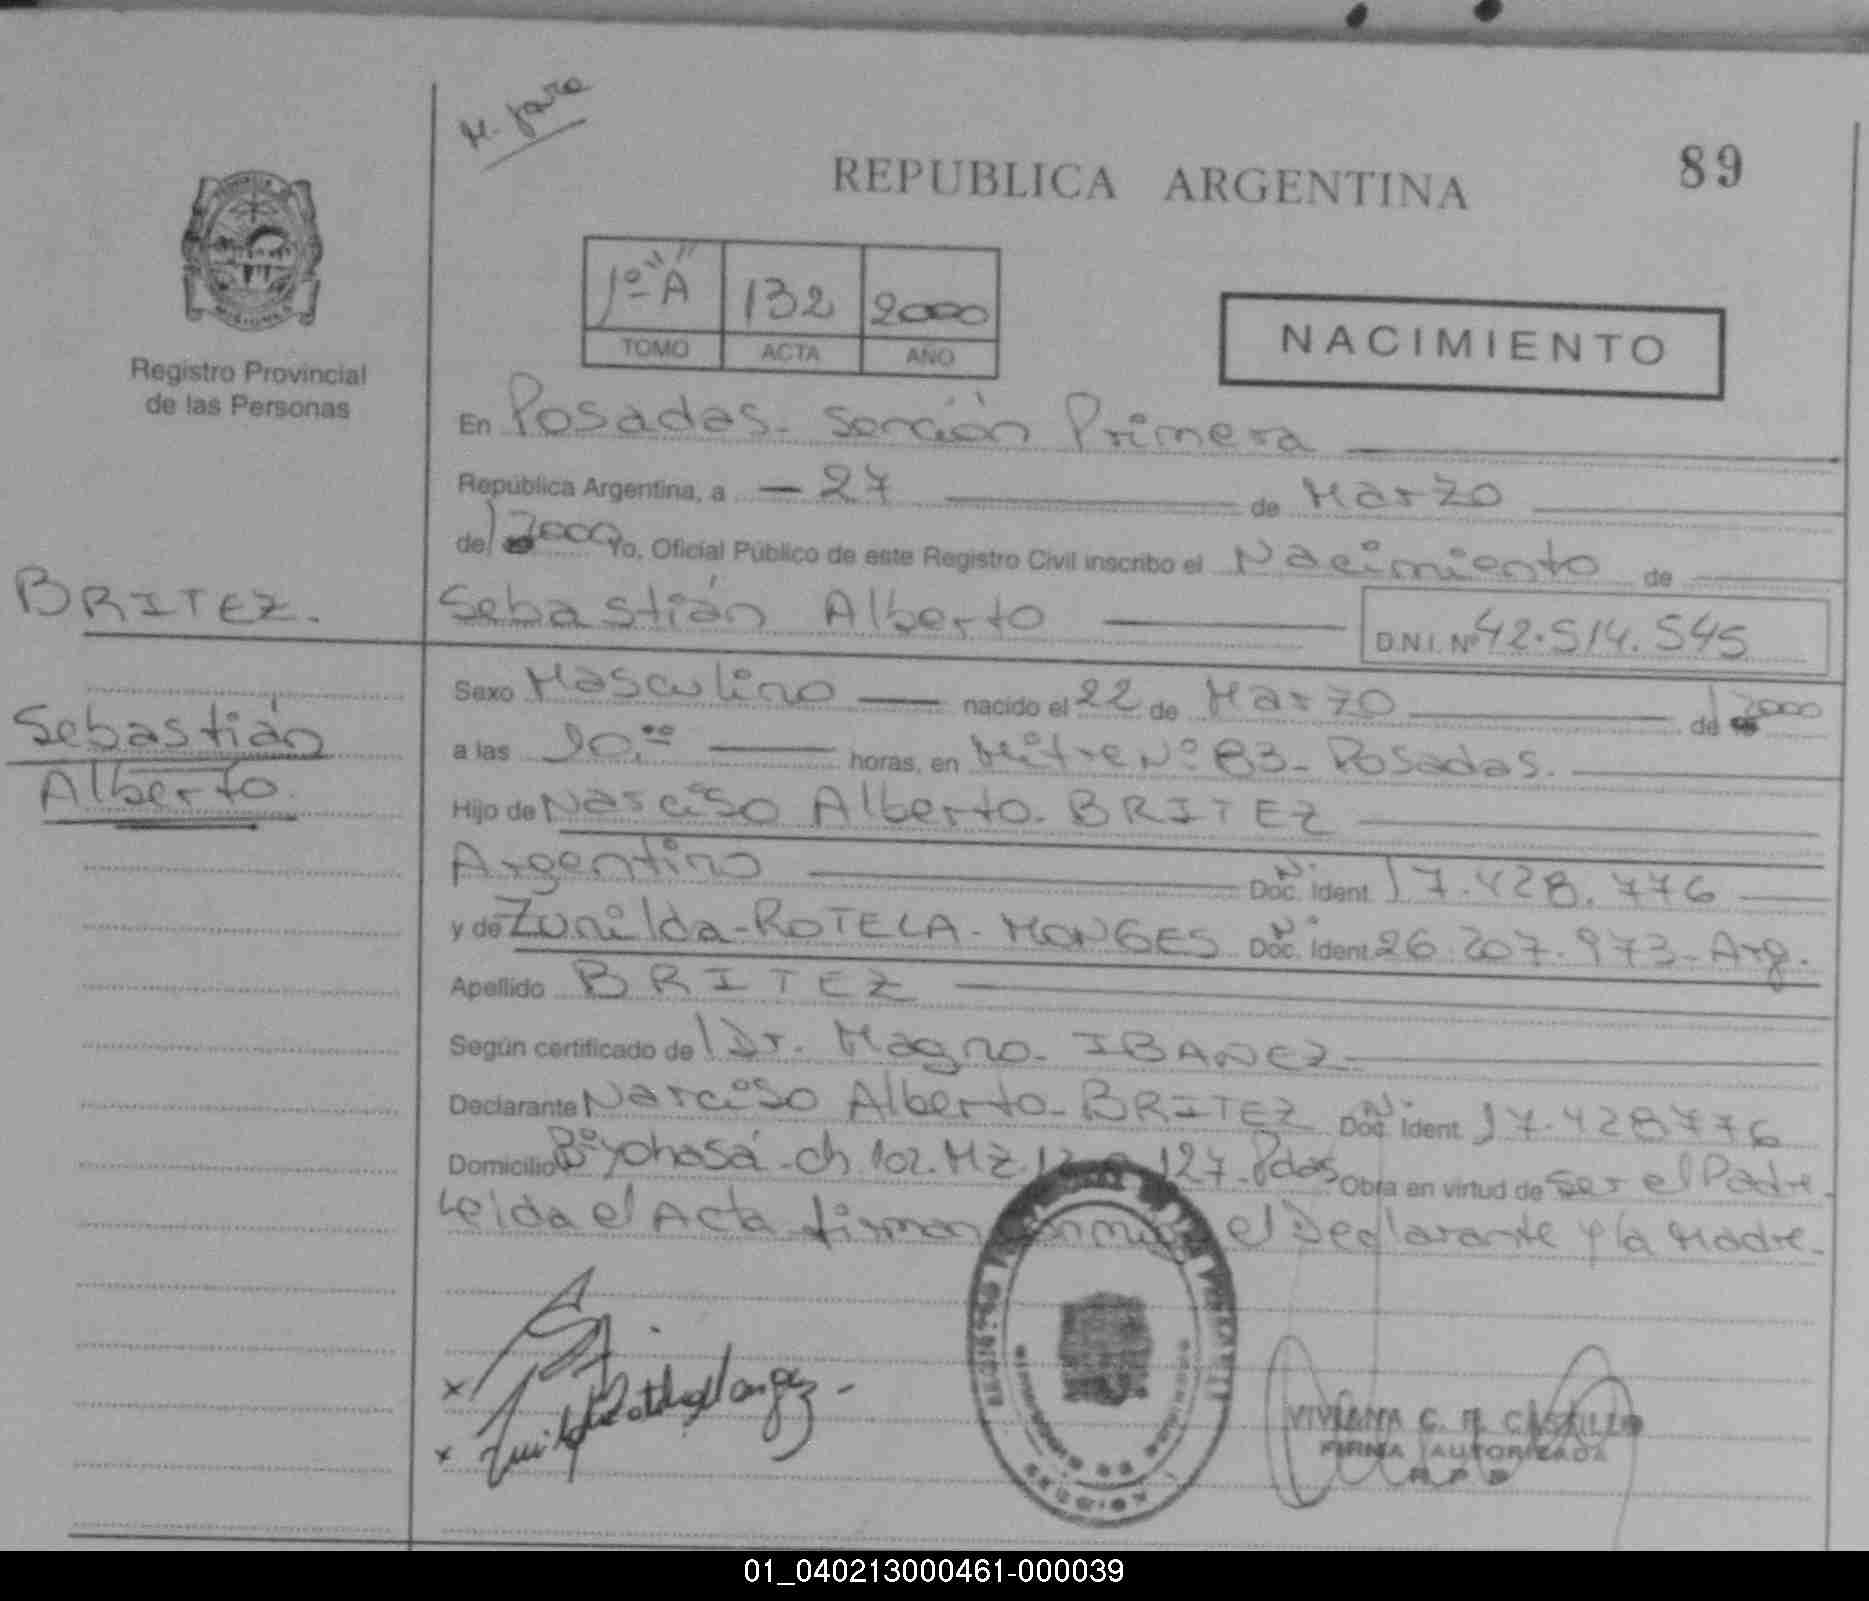 M. Jara
REPUBLICA ARGENTINA
89
1º "A" 132 2000
TOMO ACTA AÑO
NACIMIENTO
Registro Provincial
de las Personas
En Posadas - Sección Primera
República Argentina, a - 27 de Marzo
de 2000 Yo, Oficial Público de este Registro Civil inscribo el Nacimiento de
BRITEZ.
Sebastián Alberto D.N.I. Nº 42.514.545
Sebastián
Alberto.
Sexo Masculino nacido el 22 de Marzo de 2000
a las horas, en Mitre Nº 83 - Posadas.
Hijo de Narciso Alberto - BRITEZ
Argentino Doc. Ident. 17.428.776
y de Zunilda - ROTELA - MONGES Doc. Ident. 26.207.973 - Arg.
Apellido BRITEZ
Según certificado de Dr. Magno - IBAÑEZ
Declarante Narciso Alberto - BRITEZ Doc. Ident. 17.428776
Domicilio Bº Yohasá - ch 102. Mz. 127 - Pdas Obra en virtud de Ser el Padre.
Leida el Acta firman el Declarante y la Madre.
VIVIANA C. R. CASTILLO
FIRMA AUTORIZADA
R P P
MISIONES
01_040213000461-000039